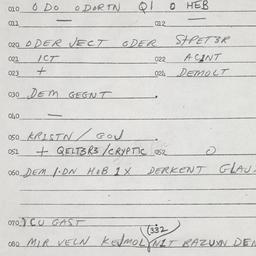 010 O DO ODORTN Q1 O HEB
011 — 012 —
020 ODER VECT ODER STPET3R
021 ICT 022 ACINT
023 + 024 DEMOLT
030 DEM GEGNT
040 —
050 KRISTN / GOV
051 + QELT3R3/CRYPTIC 052 O
060 DEM 1·DN HOB 1X DERKENT GLAU
070 CU GAST
332
080 MIR VELN KEJMOL N1T RAZUXN DEN